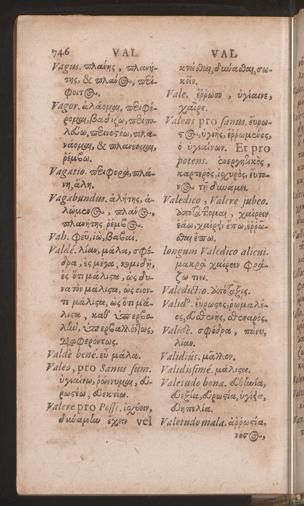 746 VAL
Vagus. πλανής, πλανή-
της, & πλαν@, περί-
φοιτ@.
Vagor. ἀλάομαι, περιφέ-
ρομαι, βαδίζω, περιπο-
πλανάομαι, & πλανέομαι,
ῥέμβω.
Vagatio. περιφορὰ, πλά-
νη, ἄλη.
Vagabundus. ἀλήτης, ἀ-
πλανήτης ῥέμβ@.
Vah. φεῦ, ἰὼ, βαβαί.
Valdè. λίαν, μάλα, σφό-
δρα, ἐς μέγα, κομιδῇ,
ἐς ὅτι μάλιστα, ὡς δυ-
νατὸν μάλιστα, ὡς οἷόν
τε μάλιστα, ὡς ὅτι μά-
λιστα, καθ' ὑπερβο-
λὴν, ὑπερβαλλόντως,
διαφερόντως.
Valde bene. εὖ μάλα.
Valeo, pro Sanus sum.
ὑγιαίνω, ῥώννυμαι, εὐ-
ρωστέω, εὐεκτέω.
Valere pro Posse. ἰσχύειν,
δύναμιν ἔχειν vel
VAL
κτᾶσθαι, δύνασθαι, σω-
κεῖν.
Vale. ἔῤῥωσο, ὑγίαινε,
χαῖρε.
Valens pro sanus. εὔρω-
στ@, ὑγιὴς, ἐῤῥωμένος,
ὁ ὑγιαίνων. Et pro
potens. ἐνεργητικὸς,
καρτερὸς, ἰσχυρὸς, εὔτο-
ν@ τῇ δυνάμει.
Valedico, Valere jubeo.
ἀποτάττομαι, χαίρειν
ἐάω, χαίρειν ἔπω, ἐῤῥῶ-
σθαι ἔπω.
longum Valedico alicui.
μακρὰ χαίρειν φρά-
ζω τινι.
Valedictio. ἀπόταξις.
Validus. εὔρωστος, ῥωμαλέ-
ος, εὐσθενὴς, στεῤῥός.
Validè. σφόδρα, πάνυ,
λίαν.
Validius. μᾶλλον.
Validissimè. μάλιστα.
Valetudo bona. εὐεξία,
εὐρωστία, ὑγίεια,
Valetudo mala. ἀῤῥωστία,
νόσ@,